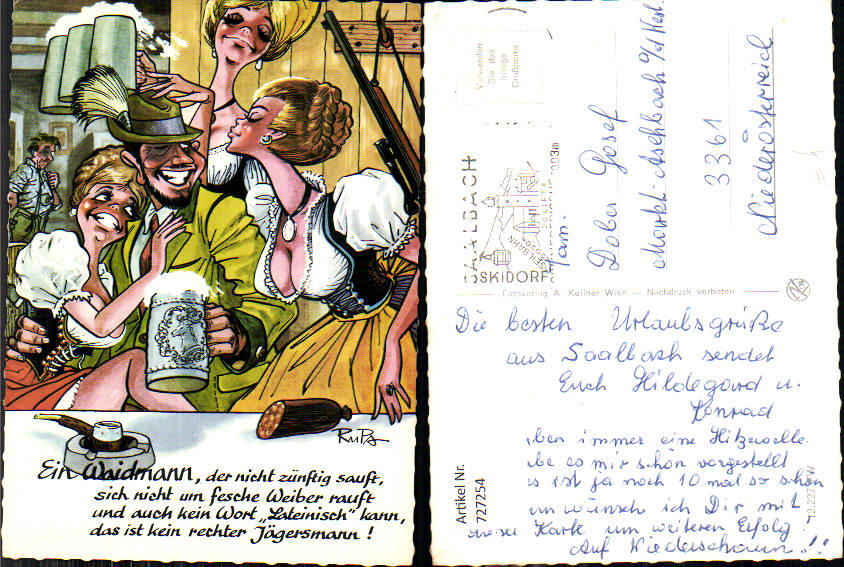 RuPA
Ein Waidmann, der nicht zünftig sauft,
sich nicht um fesche Weiber rauft
und auch kein Wort „Lateinisch" kann,
das ist kein rechter Jägersmann!
Verwenden
Sie das
billige
Grußporto
SAALBACH
SKIDORF
Fam.
Dober Josef
Markt-Aschbach
3361
Niederösterreich
Fotoverlag A. Kellner Wien – Nachdruck verboten
Die besten Urlaubsgrüße
aus Saalbach sendet
Euch Hildegard u.
Konrad
immer eine Hitzewelle.
es mir schön vorgestellt
es ist ja noch 10 mal so schön
wünsch ich Dir mit
dieser Karte um weiteren Erfolg!
Auf Wiederschaun!!
Artikel Nr.
727254